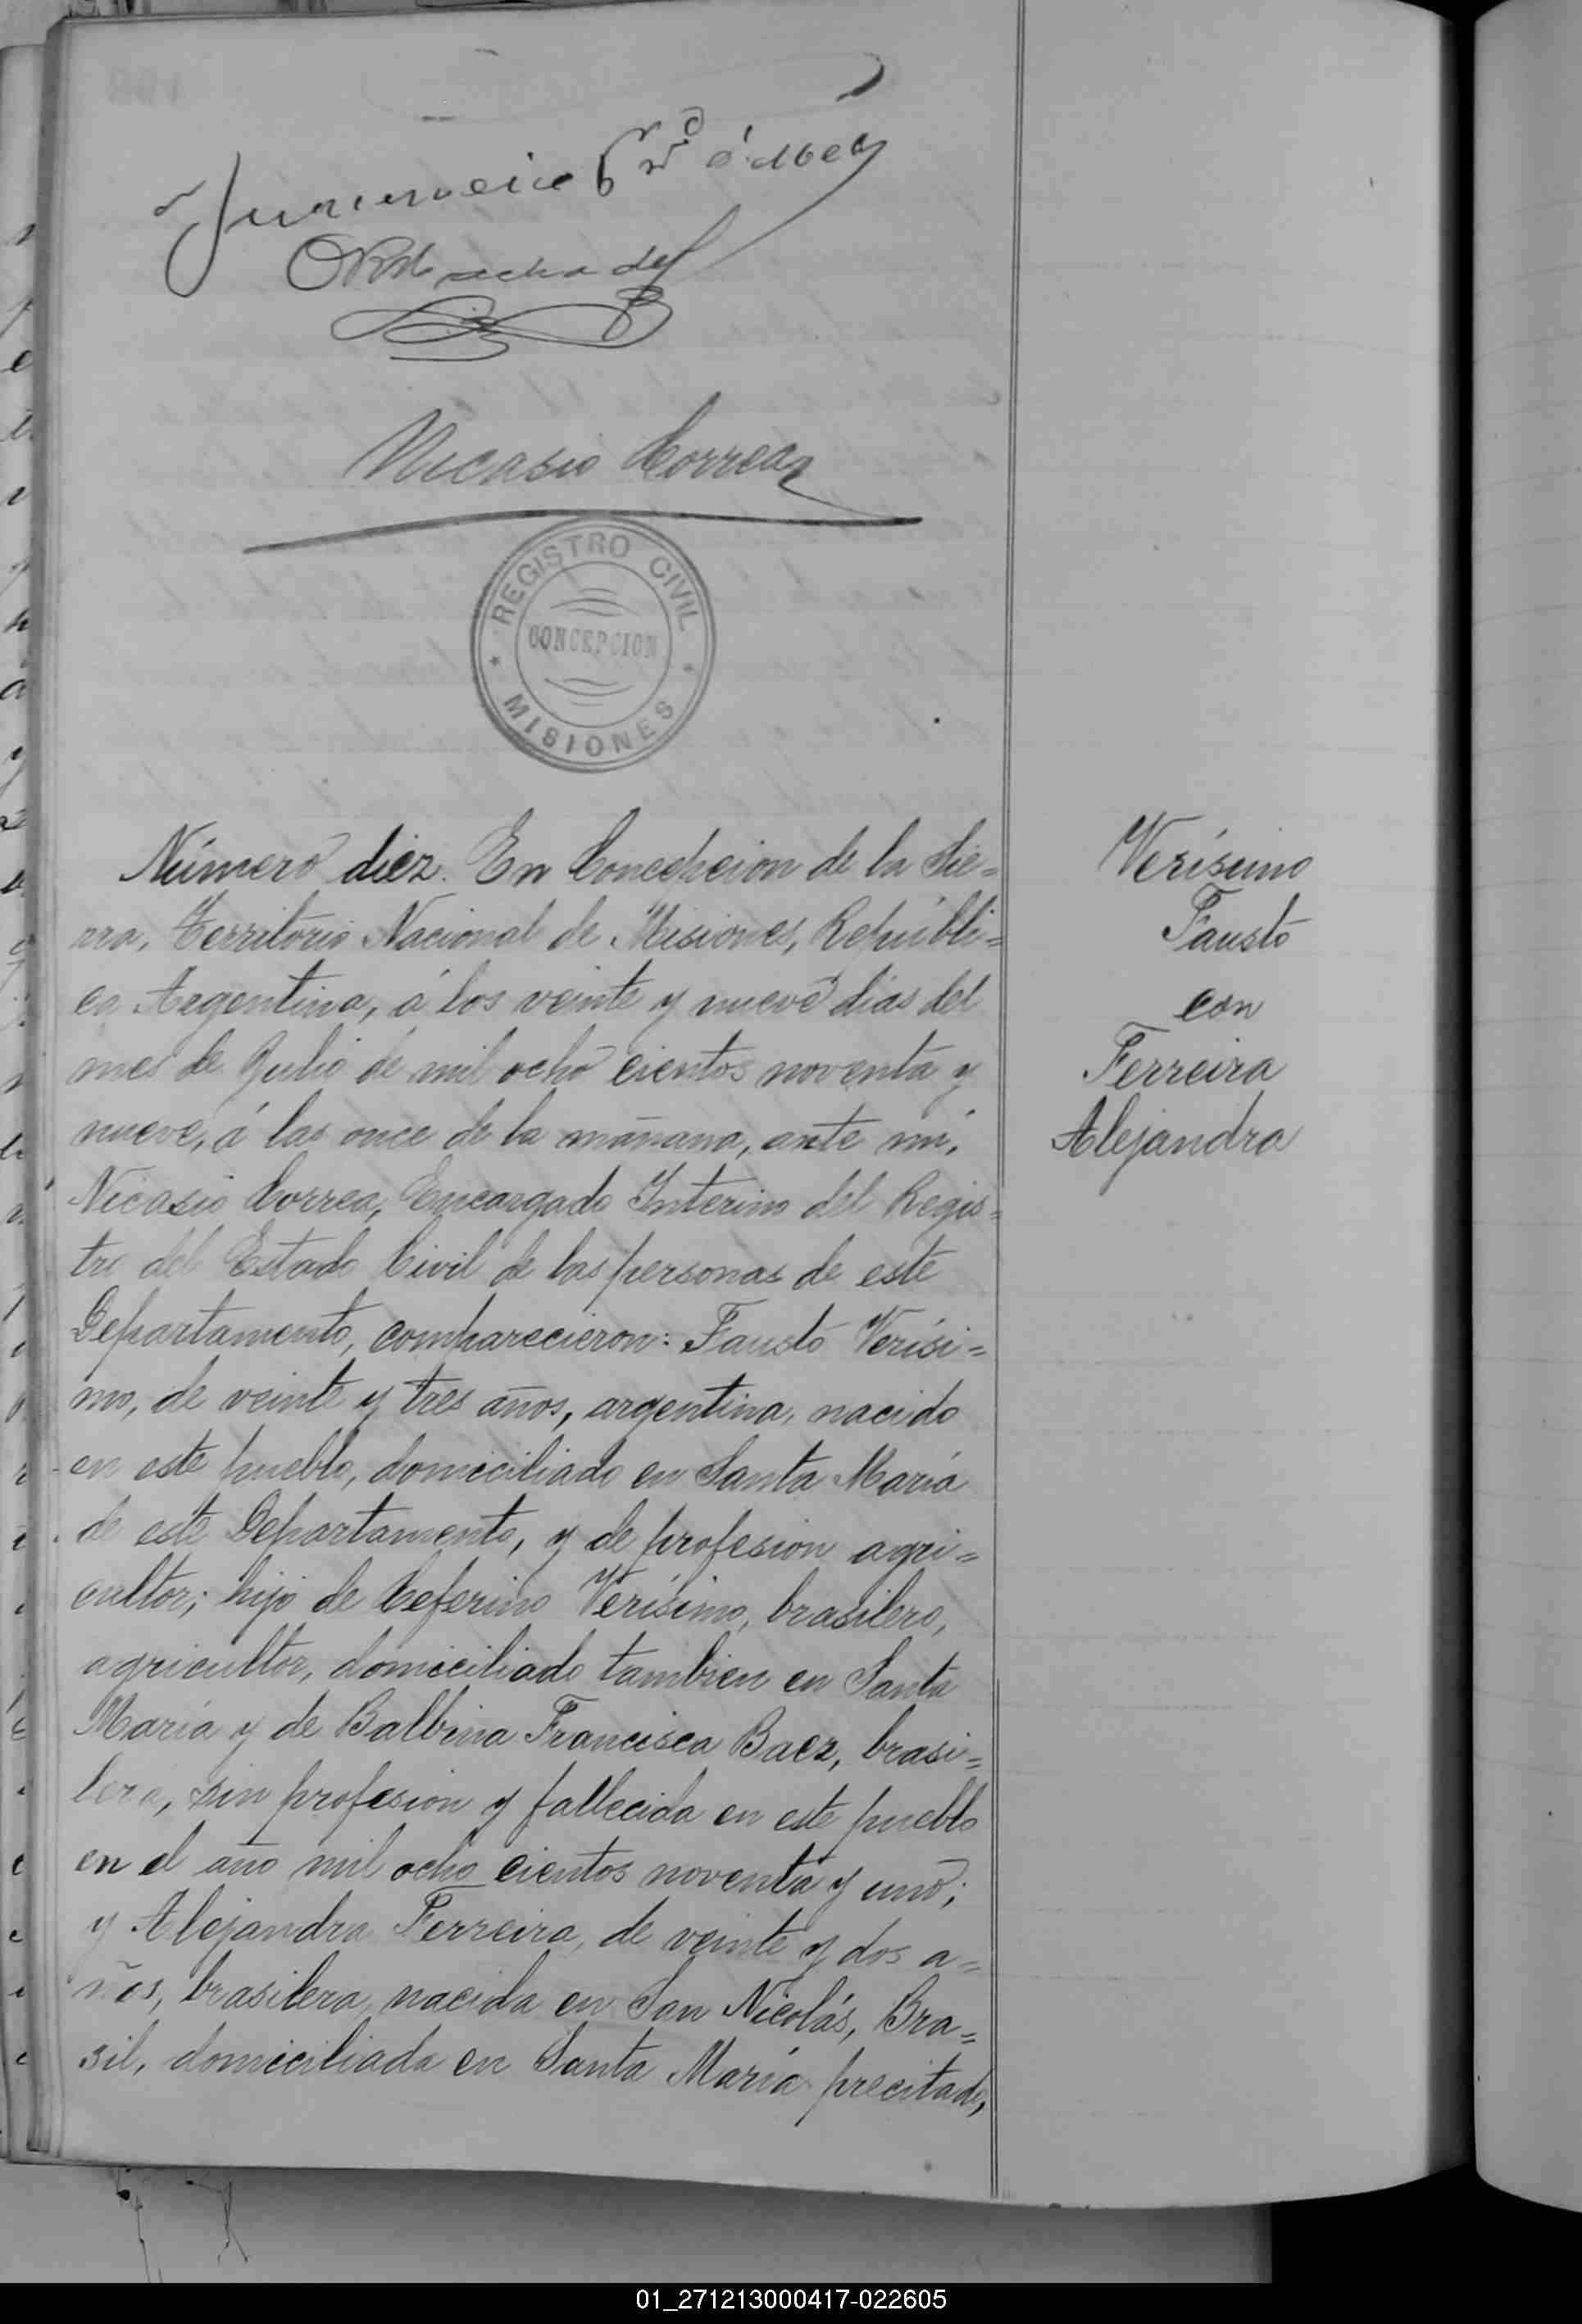 Nicasio Correa
REGISTRO CIVIL
CONCEPCION
MISIONES
Número diez. En Concepcion de la Sie=
rra, Territorio Nacional de Misiones, Repúbli=
ca Argentina, á los veinte y nueve dias del
mes de Julio de mil ocho cientos noventa y
nueve, á las once de la mañana, ante mi,
Nicasio Correa, Encargado Interino del Regis=
tro del Estado Civil de las personas de este
Departamento, comparecieron: Fausto Verísi=
mo, de veinte y tres años, argentino, nacido
en este pueblo, domiciliado en Santa María
de este Departamento, y de profesion agri=
cultor; hijo de Ceferino Verísimo, brasilero,
agricultor, domiciliado tambien en Santa
María y de Balbina Francisca Baez, brasi=
lera, sin profesion y fallecida en este pueblo
en el año mil ocho cientos noventa y uno;
y Alejandra Ferreira, de veinte y dos a=
ños, brasilera, nacida en San Nicolás, Bra=
sil, domiciliada en Santa María precitado,
Verísimo
Fausto
con
Ferreira
Alejandra
01_271213000417-022605